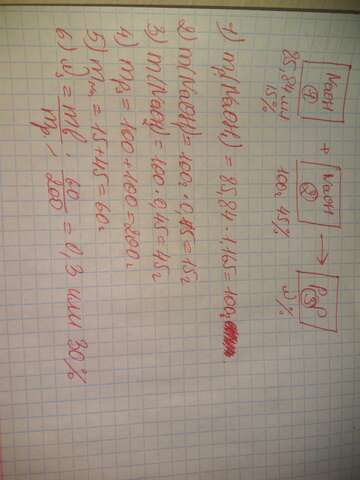 NaOH ① + NaOH ② → р-р ③
85,84 мл 15% 100г 45% ω%
1) mр(NaOH) = 85,84 · 1,165 = 100г
2) m(NaOH) = 100г · 0,15 = 15г
3) m(NaOH) = 100 · 0,45 = 45г
4) mр3 = 100 + 100 = 200г
5) = 15 + 45 = 60г
6) ω3 = mв/mр ; 60/200 = 0,3 или 30%